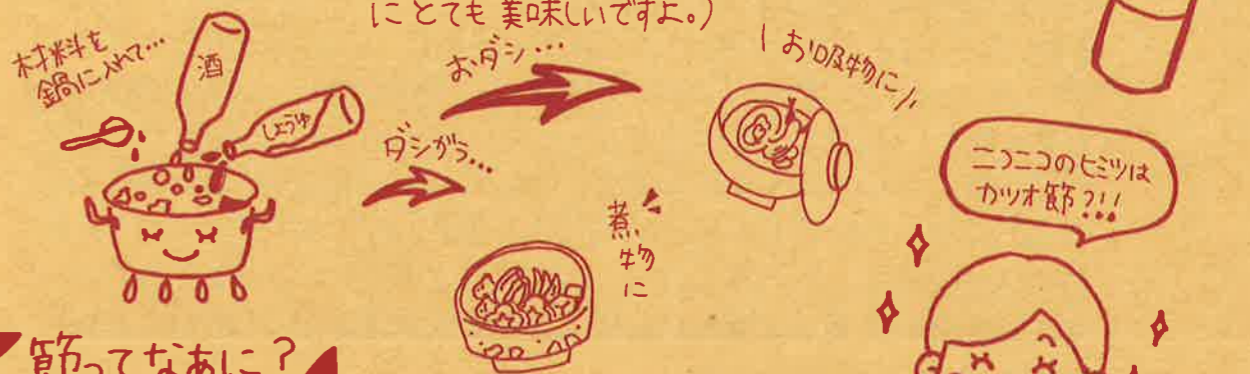 にとても美味しいですよ。)
材料を
鍋に入れて…
酒
しょうゆ
おダシ…
お吸物に
ダシがら…
煮物に
ニコニコのヒミツは
カツオ節?!!
節ってなあに?